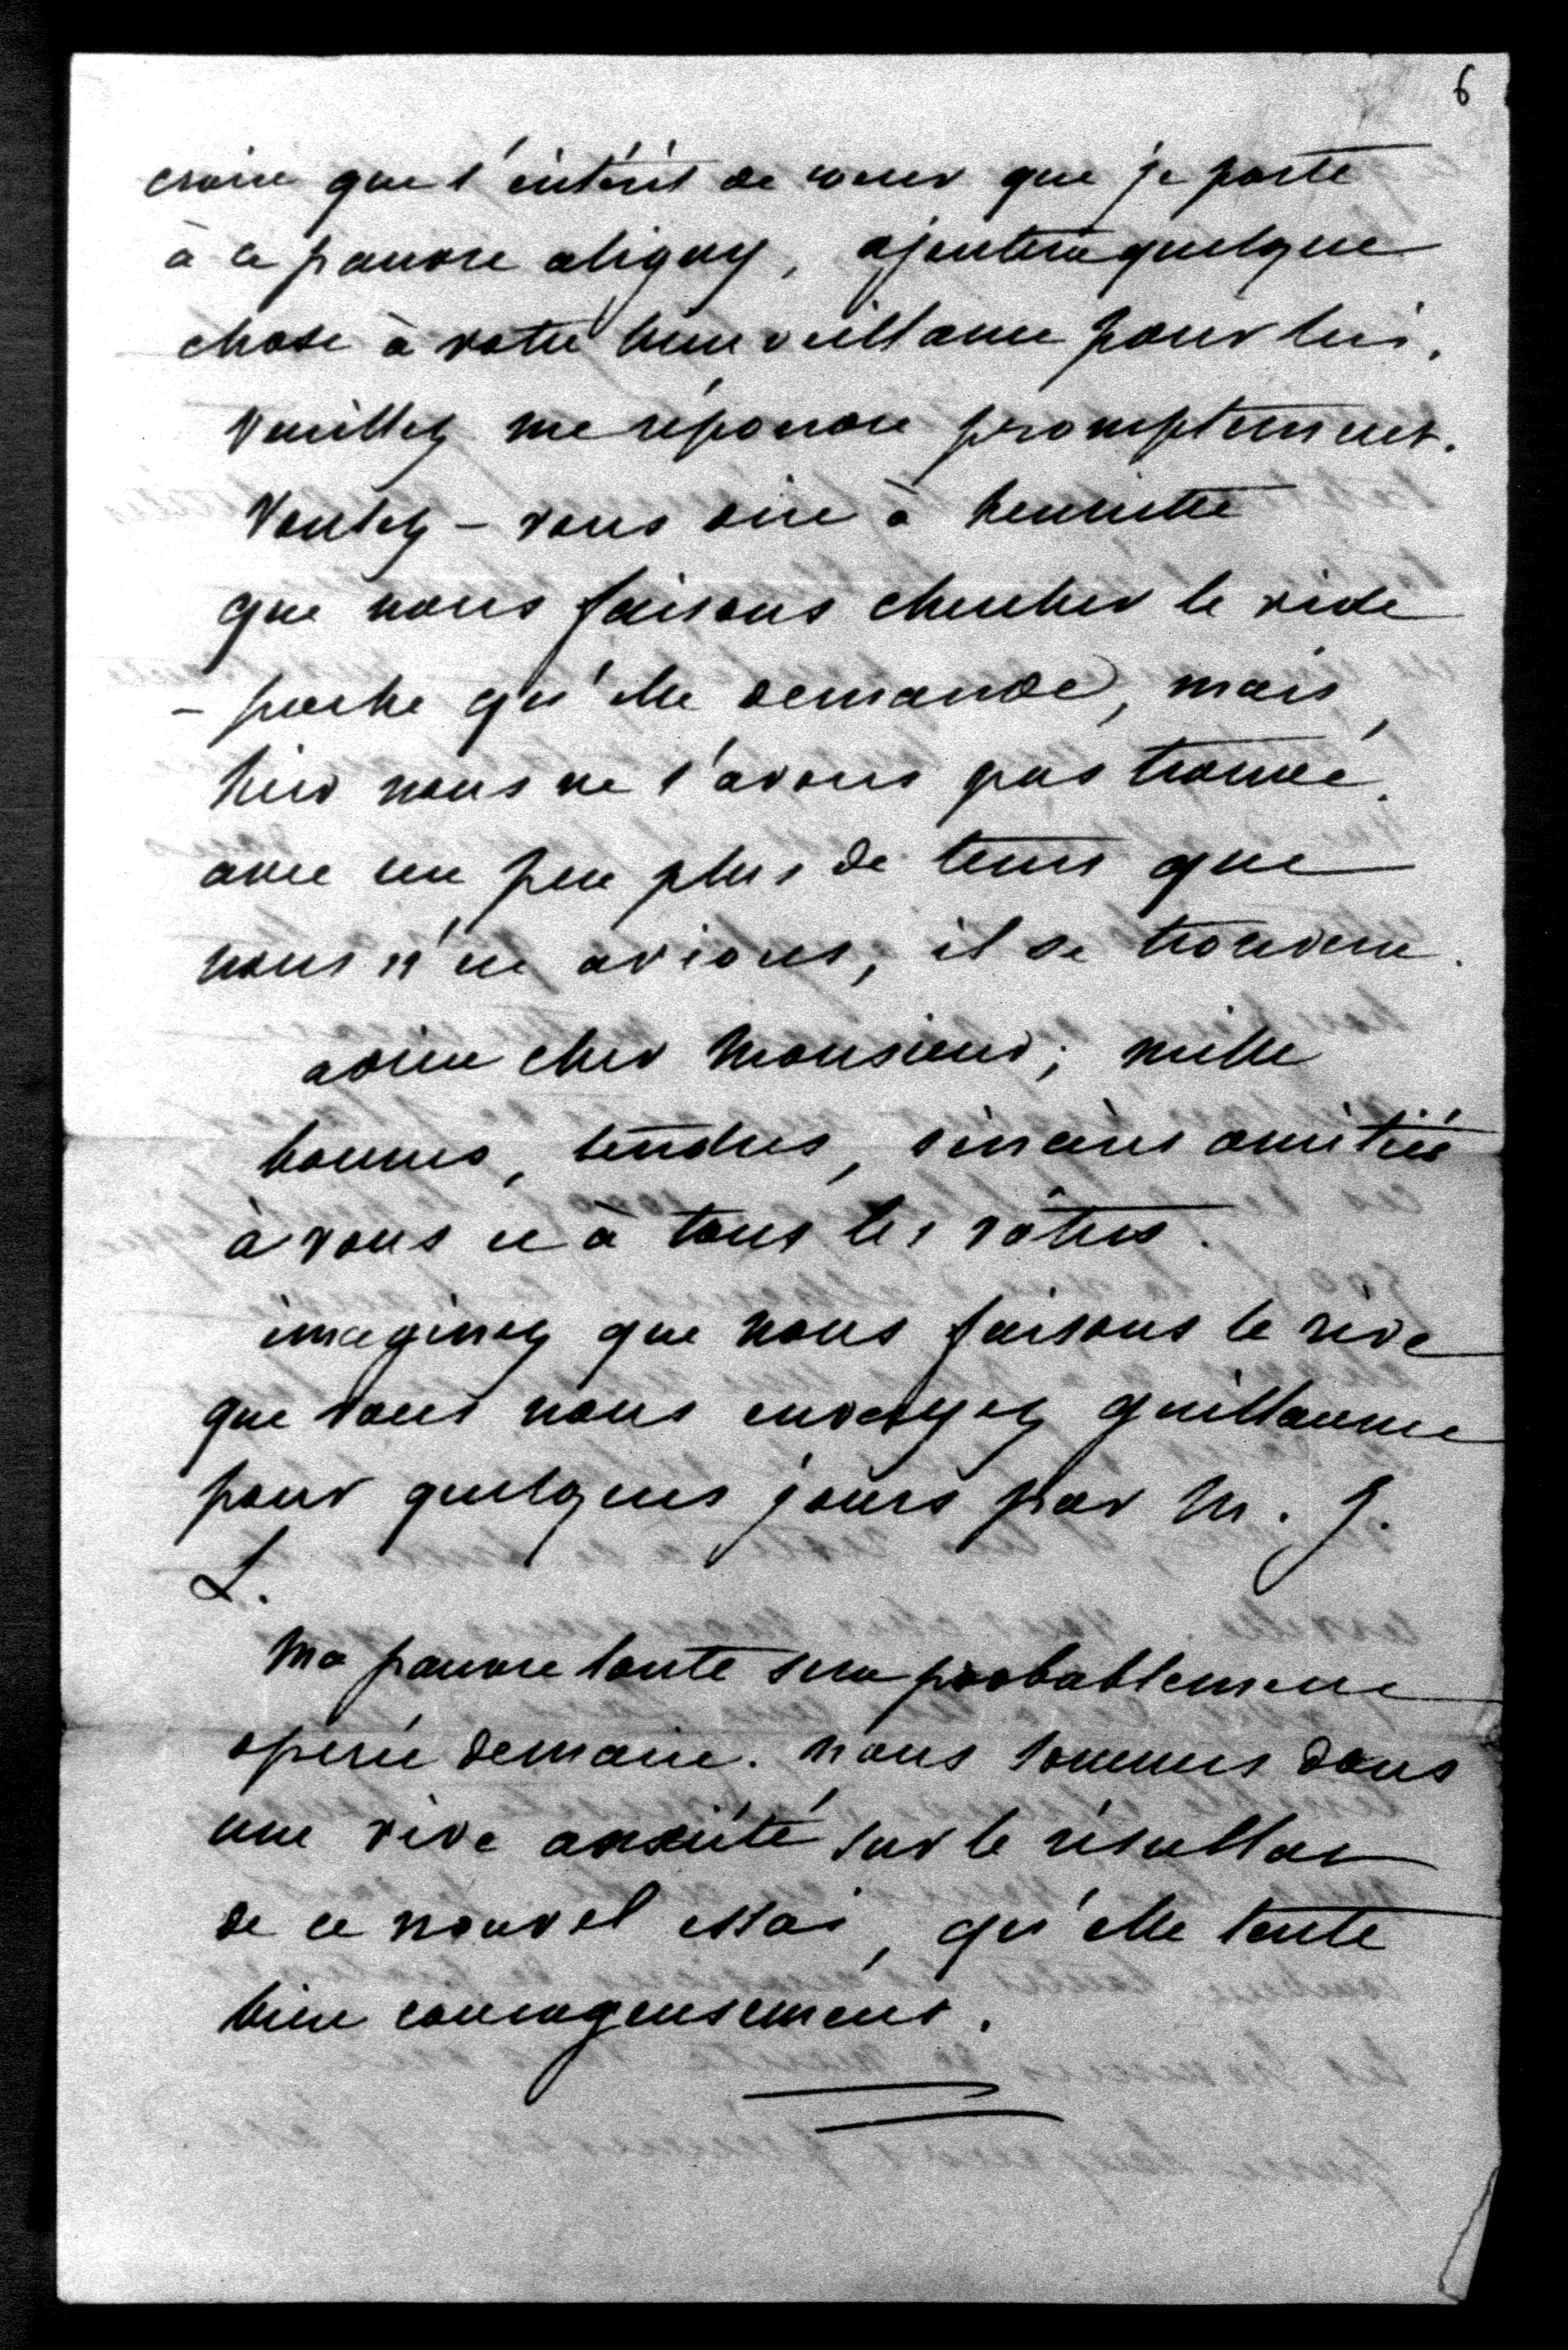 6
croire que l'intérêt de coeur que je porte
à ce pauvre aligny, ajoutera quelque
chose à votre bienveillance pour lui.
Veuillez me répondre promptement.
Voulez-vous dire à henriette
que nous faisons chercher le vide
- poche qu'elle demande, mais
hier nous ne l'avons pas trouvé.
avec un peu plus de tems que
nous n'en avions, il se trouvera.
adieu cher Monsieur; mille
bonnes, tendres, sincères amitiés
à vous et à tous les vôtres.
imaginez que nous faisons le rêve
que vous nous envoyez guillaume
pour quelques jours par M. J.
L.
Ma pauvre tante sera probablement
opérée demain. nous sommes dans
une vive anxiété sur le résultat
de ce nouvel essai, qu'elle tente
bien courageusement.